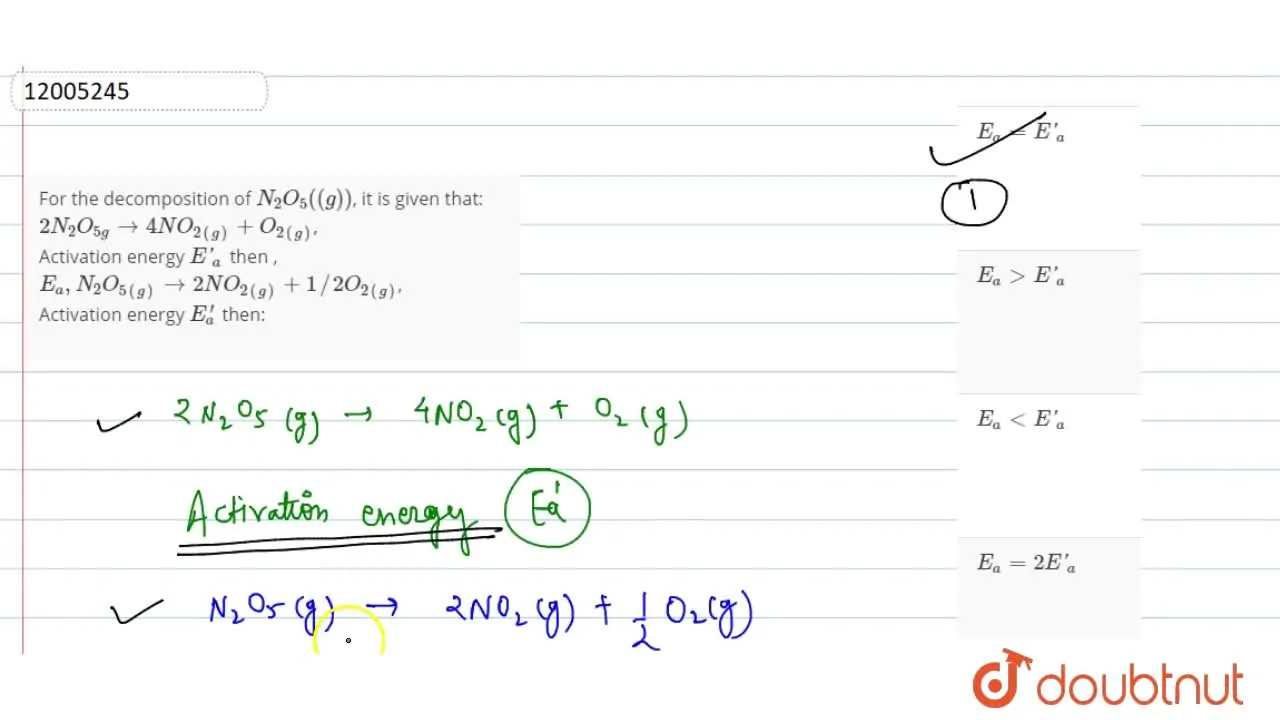 12005245
For the decomposition of N₂O₅((g)), it is given that:
2N₂O₅g → 4NO₂(g) + O₂(g),
Activation energy E'ₐ then ,
Eₐ, N₂O₅(g) → 2NO₂(g) + 1/2O₂(g),
Activation energy E′ₐ then:
Eₐ = E'ₐ
1
Eₐ > E'ₐ
Eₐ < E'ₐ
Eₐ = 2E'ₐ
2N₂O₅(g) → 4NO₂(g) + O₂(g)
Activation energy Ea'
N₂O₅(g) → 2NO₂(g) + 1/2 O₂(g)
doubtnut